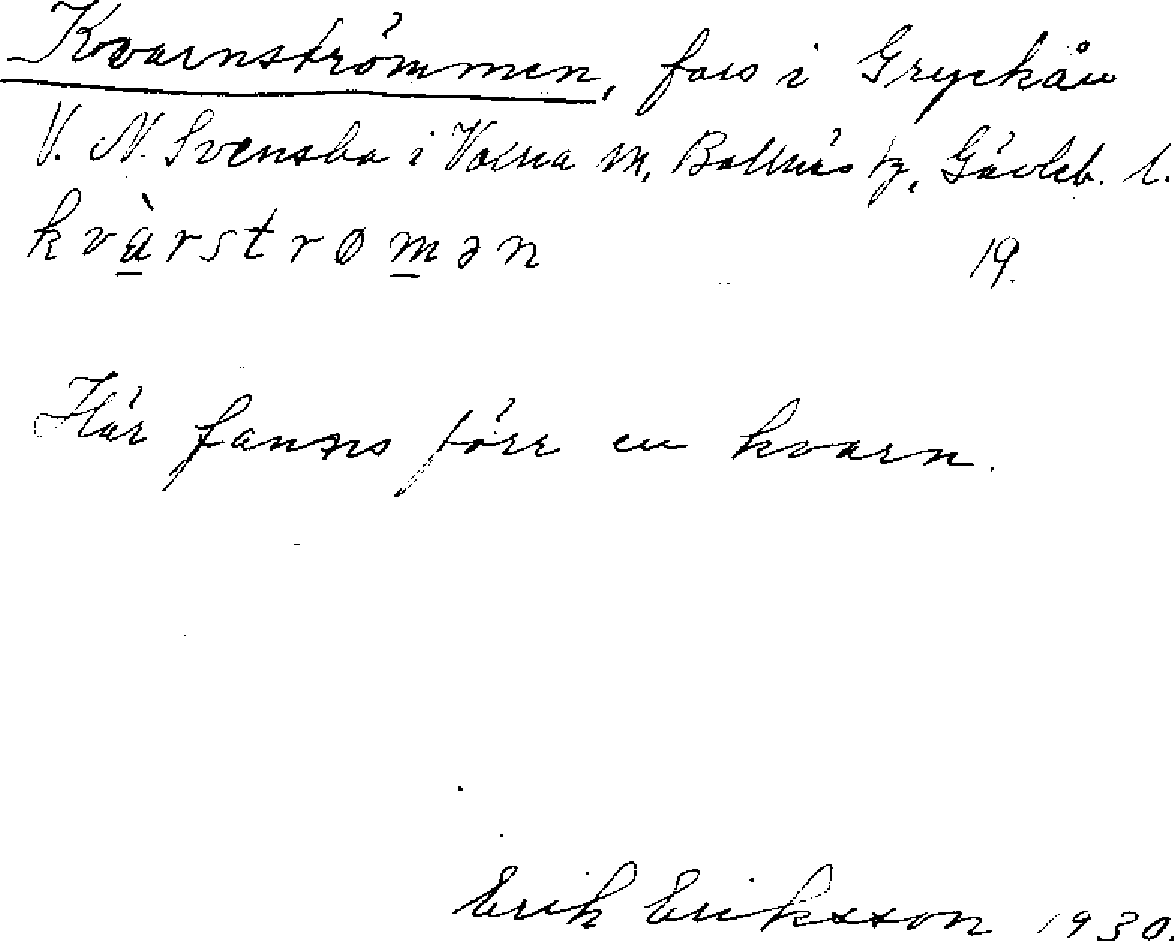 Kvarnströmmen, fors i Gryckån
V. N. Svensbo i Voxna sn, Bollnäs tg, Gävleb. l.
kvàrstrømən 19.
Här fanns förr en kvarn.
Erik Eriksson 1930.